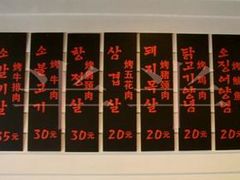 소갈비살
烤牛排肉
35元
소불고기
烤牛肉
30元
항정살
烤猪颈肉
30元
삼겹살
烤五花肉
20元
돼지목살
烤猪颈肉
20元
닭고기양념
烤鸡肉
20元
소징어양념
烤鱿鱼
20元